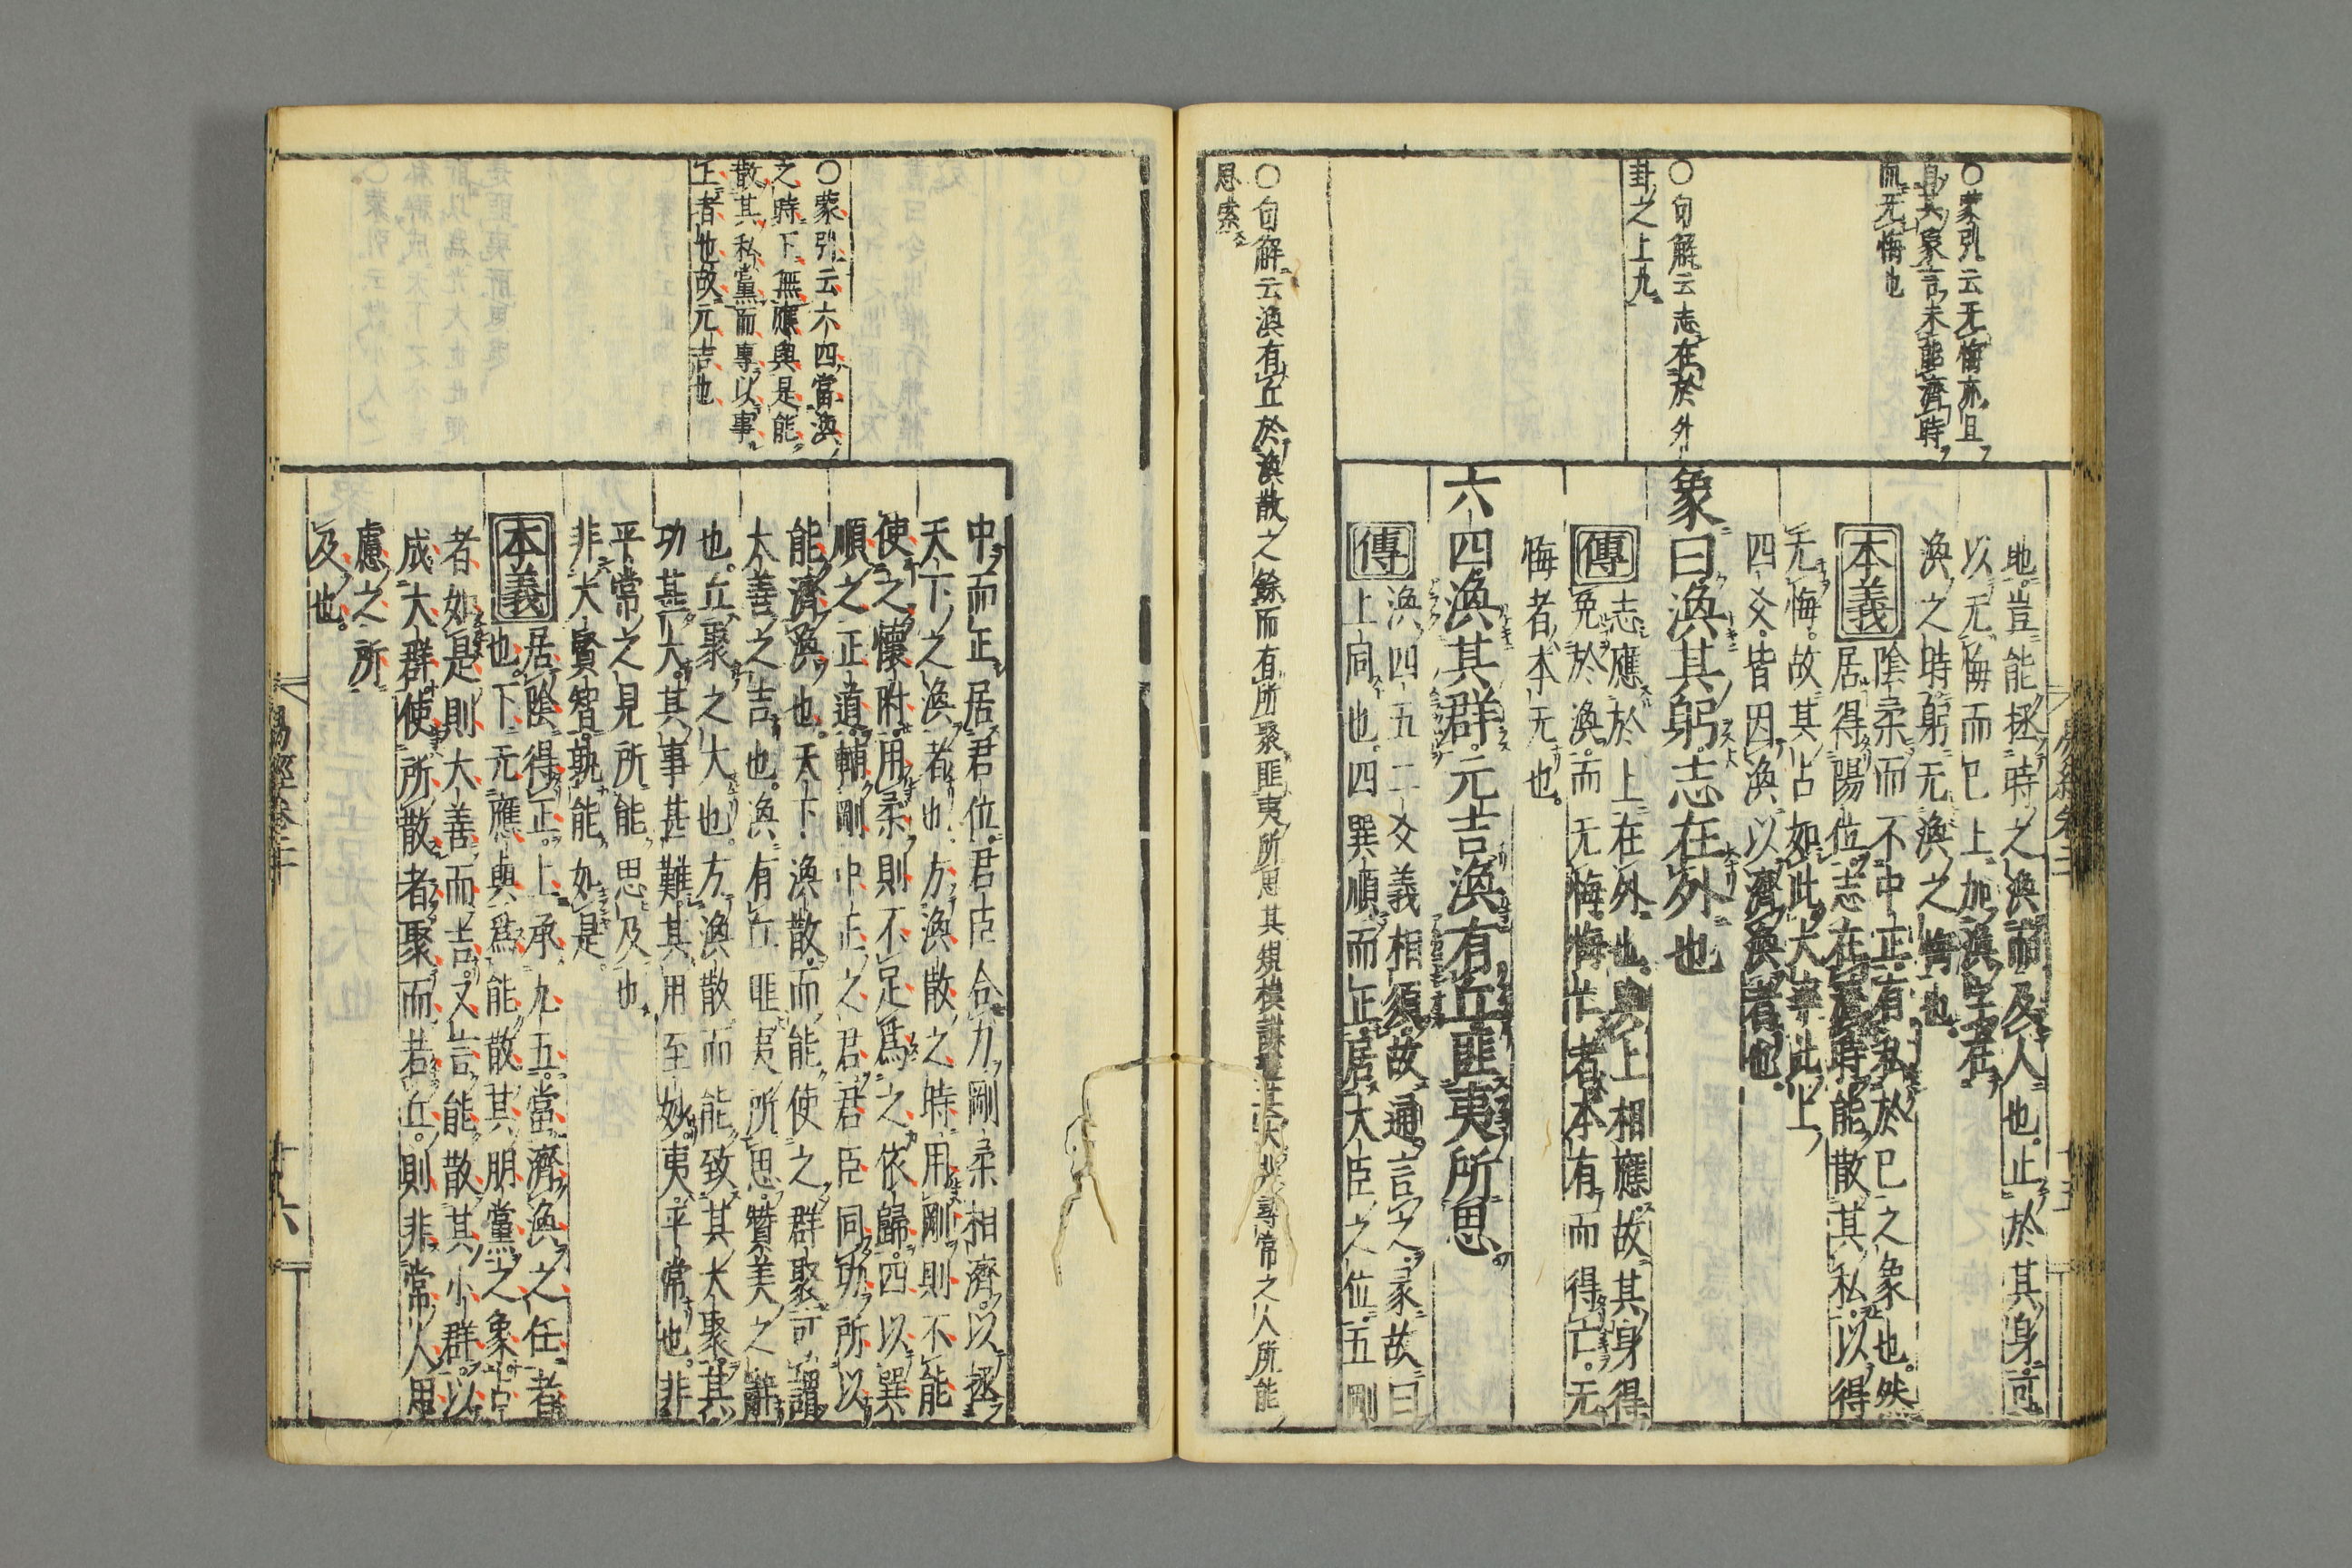 ○蒙引云无悔亦且
自其象言未能濟時
而无悔也
○句解云志在於外
卦之上九
○句解云渙有丘於渙散之餘而有所聚匪夷所思其規模 大非尋常之人所能
思索
地豈能拯時之渙而及人也止於其身可
以无悔而已上加渙字在
渙之時躬无渙之悔也
本義陰柔而不中正有私於已之象也然
居得陽位志在濟時能散其私以得
无悔故其占如此大率此上
四爻皆因渙以濟渙者也
象曰渙其躬志在外也
傳志應於上在外也與上相應故其身得
免於渙而无悔悔亡者本有而得亡无
悔者本无也
六四渙其群元吉渙有丘匪夷所思
傳渙四五二爻義相須故通言之彖故曰
上同也四巽順而正居大臣之位五剛
○蒙引云六四當渙
之時下無應與是能
散其私黨而專以事
王者也故元吉也
中而正居君位君臣合力剛柔相濟以拯
天下之渙者也方渙散之時用剛則不能
使之懷附用柔則不足爲之依歸四以巽
順之正道輔剛中正之君君臣同功所以
能濟渙也天下渙散而能使之群聚可謂
大善之吉也渙有丘匪夷所思贊美之辭
也丘聚之大也方渙散而能致其大聚其
功甚大其事甚難其用至妙夷平常也非
平常之見所能思及也
非大賢智孰能如是
本義居陰得正上承九五當濟渙之任者
也下无應與爲能散其朋黨之象占
者如是則大善而吉又言能散其小群以
成大群使所散者聚而若丘則非常人思
慮之所
及也
易經卷二十
十六